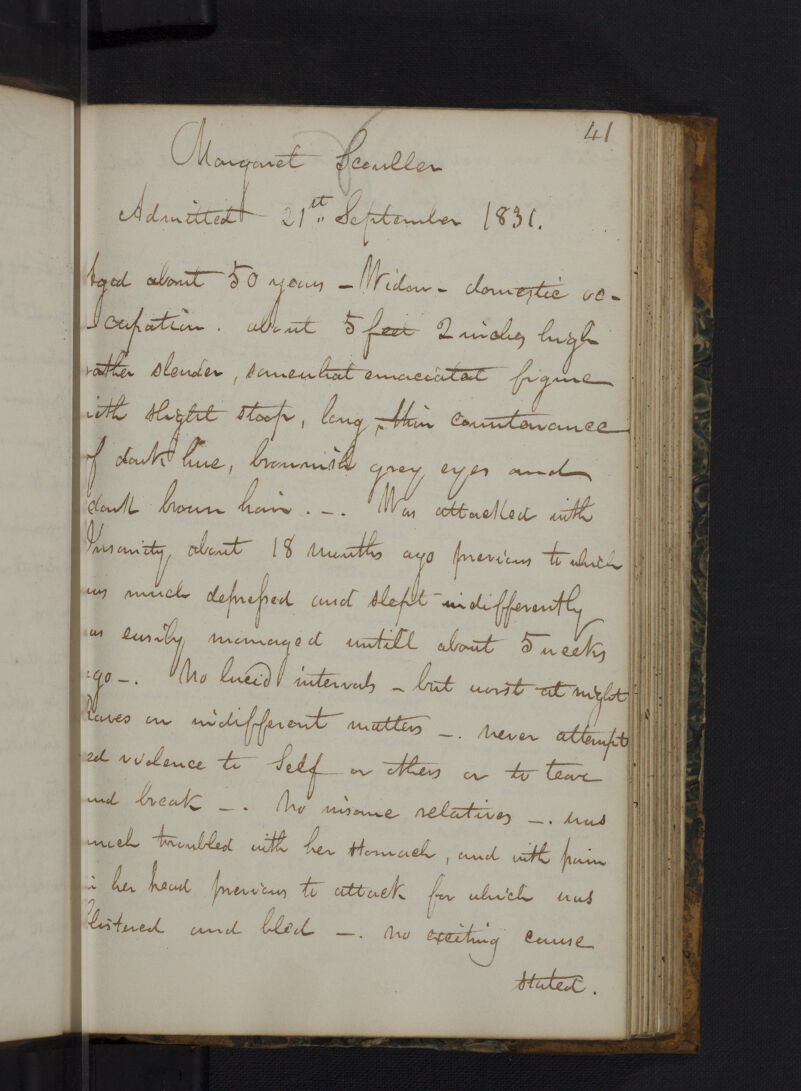 41
Margaret Scouller
Admitted 21st September 1831.
Aged about 50 years - Widow - domestic oc-
-cupation. about 5 feet 2 inches high
rather slender, somewhat emaciated figure
with slight stoop, long, thin countenance
of dark hue, brownish grey eyes and
dark brown hair. -. Was attacked with
Insanity about 18 months ago previous to which
was much depressed and slept indifferently
was easily managed untill about 5 weeks
ago -. No lucid intervals - but worst at night
Raves on indifferent matters -. never attempt
ed violence to Self or others or to tear
and break -. No insane relatives -. was
much troubled with her stomach, and with pain
in her head previous to attack for which was
blistered and bled -. no exciting cause
stated.